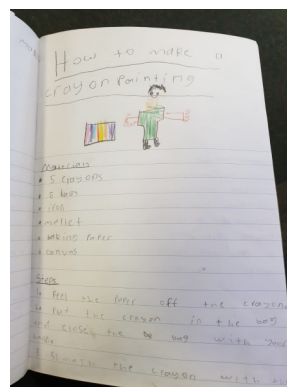 How to make a
crayon Painting
Materials
• 5 crayons
• bag
• iron
• mallet
• baking Paper
• canvas
Steps
Peel the Paper off the crayon
Put the crayon in the bag
and close the bag with your
Smash the crayon with